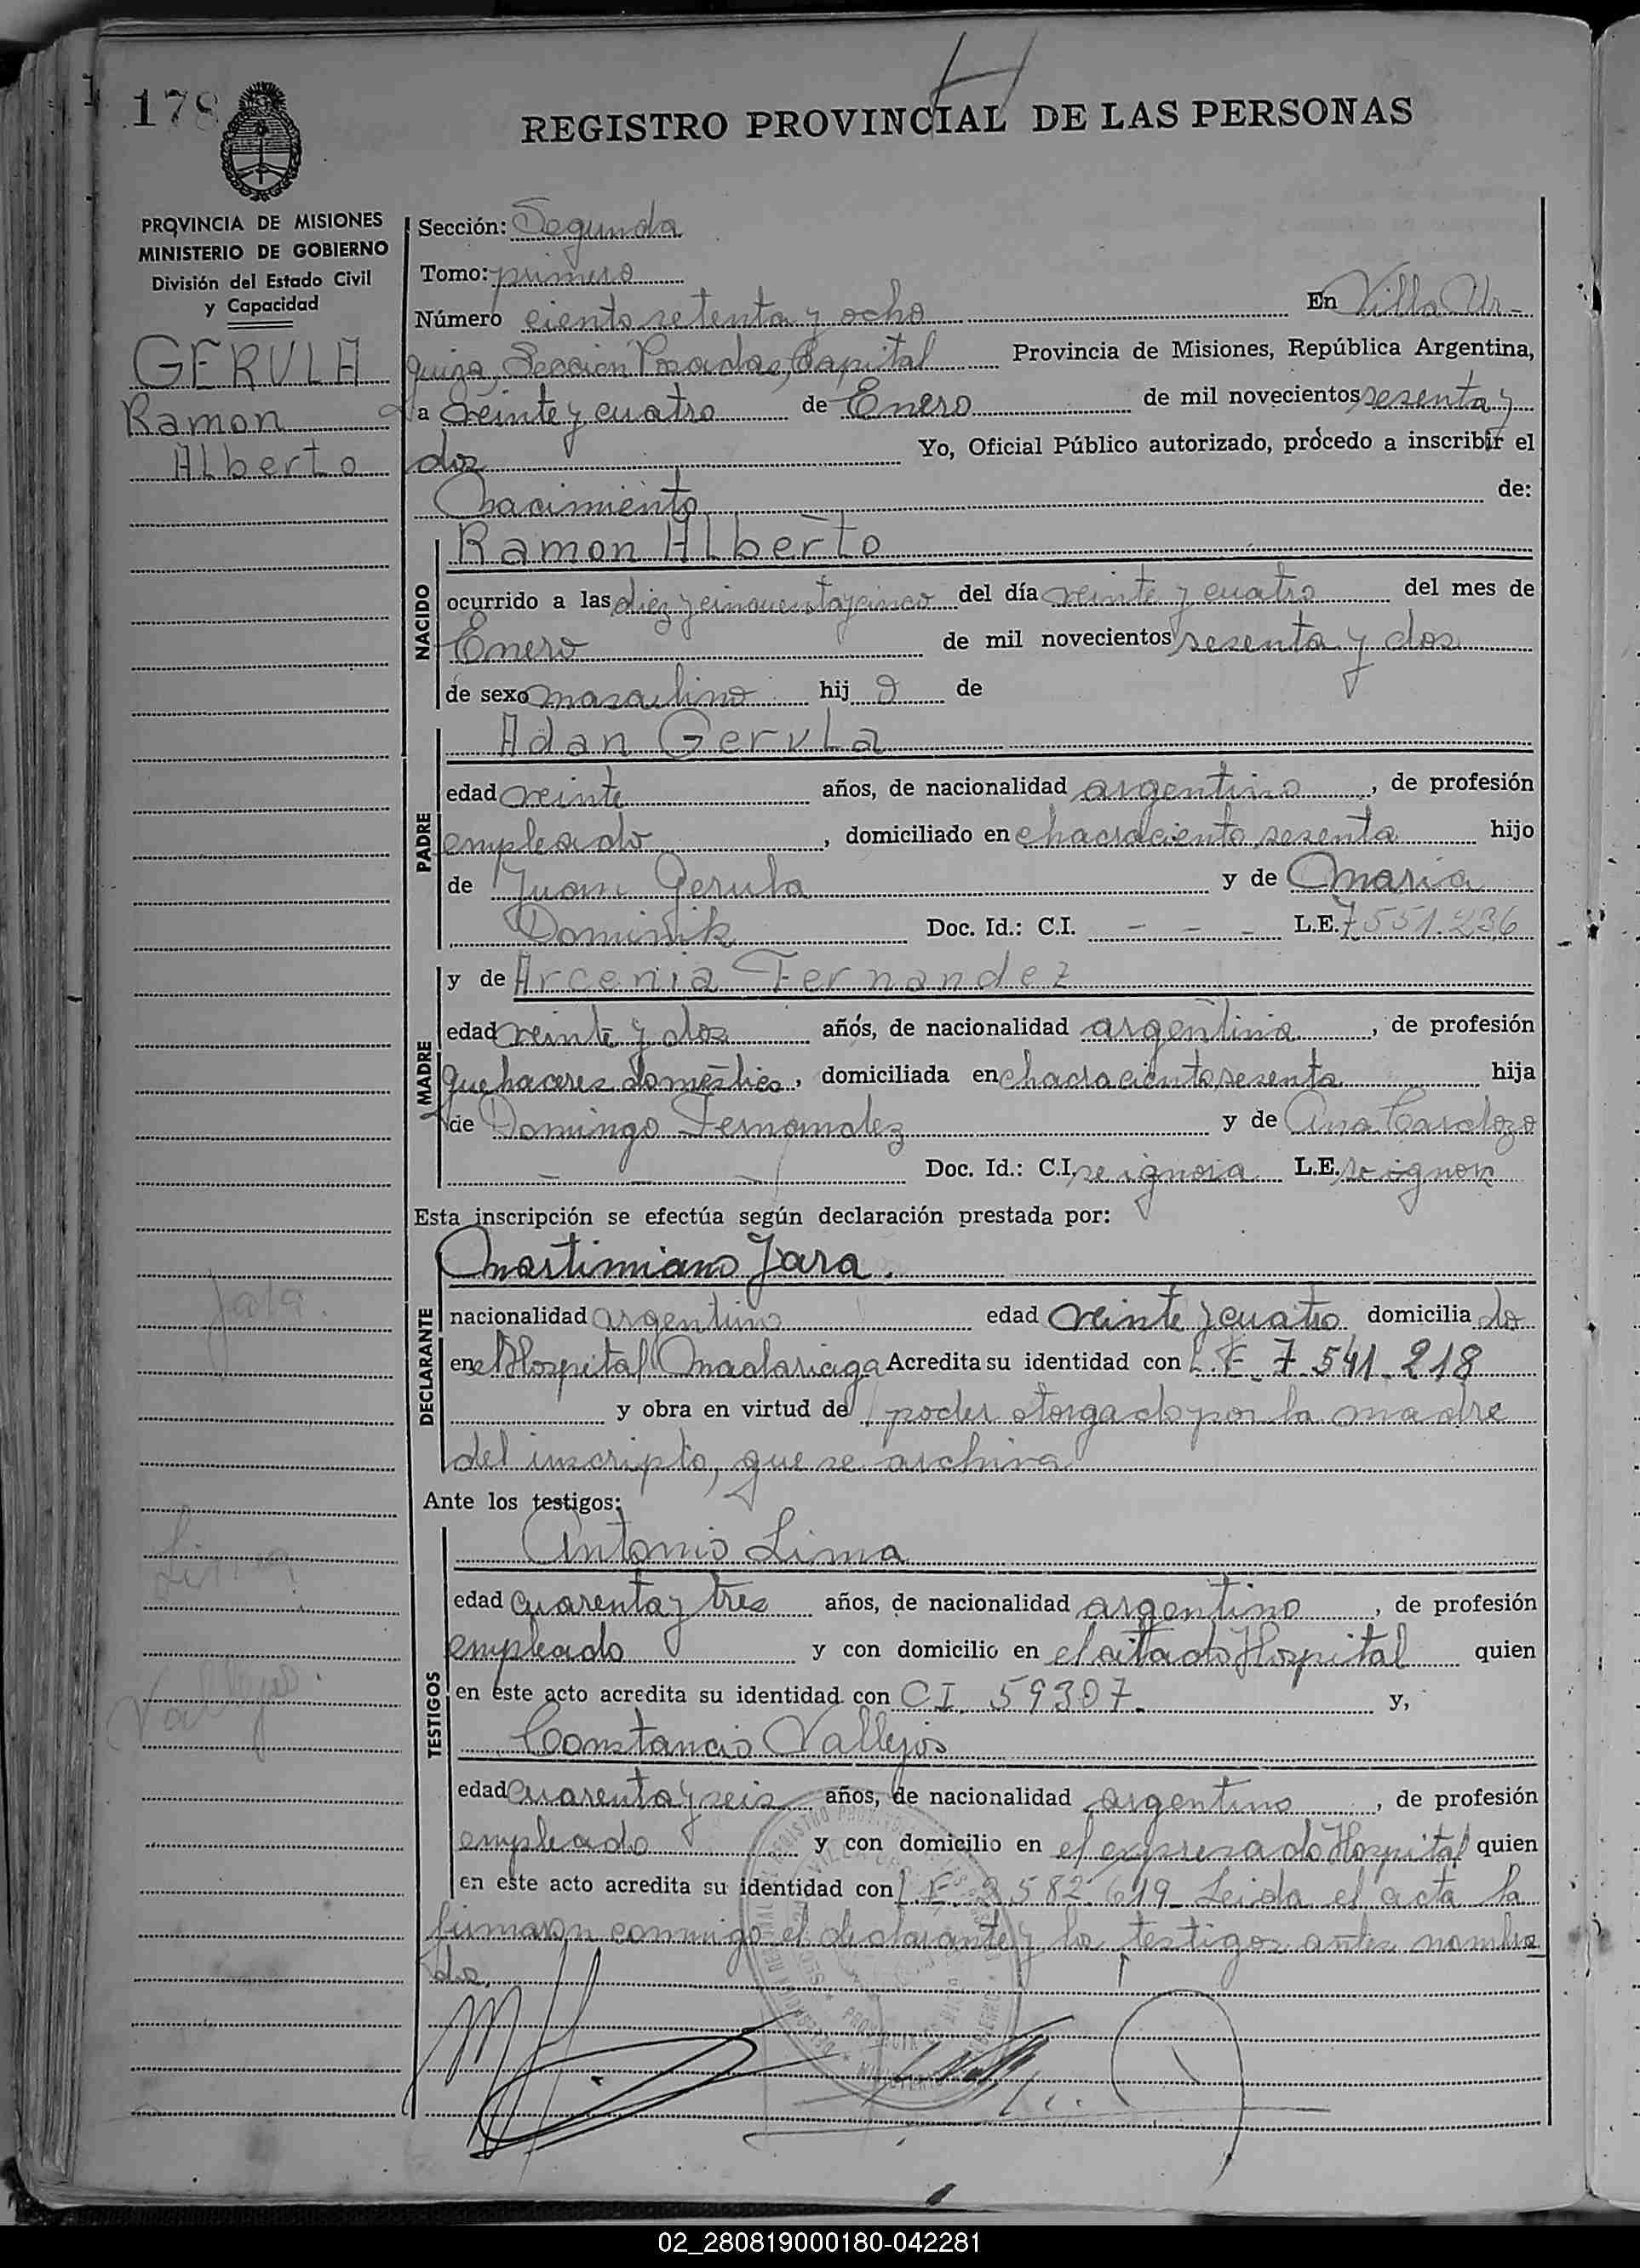 178
REGISTRO PROVINCIAL DE LAS PERSONAS
PROVINCIA DE MISIONES
MINISTERIO DE GOBIERNO
División del Estado Civil
y Capacidad
GERULA
Ramon
Alberto
Jara.
Lima
Vallejos.
Sección: Segunda
Tomo: primero
Número ciento setenta y ocho En Villa Ur-
quiza, Sección Posadas, Capital Provincia de Misiones, República Argentina,
a veinte y cuatro de Enero de mil novecientos sesenta y
dos Yo, Oficial Público autorizado, procedo a inscribir el
Nacimiento de:
NACIDO
Ramon Alberto
ocurrido a las diez y cincuenta y cinco del día veinte y cuatro del mes de
Enero de mil novecientos sesenta y dos
de sexo masculino hij o de
PADRE
Adan Gerula
edad veinte años, de nacionalidad argentino, de profesión
empleado, domiciliado en chacra ciento sesenta hijo
de Juan Gerula y de Maria
Dominik Doc. Id.: C.I. - - - L.E. 7.551.236
MADRE
y de Arcenia Fernandez
edad veinte y dos años, de nacionalidad argentina, de profesión
quehaceres domésticos, domiciliada en chacra ciento sesenta hija
de Domingo Fernandez y de Ana Cardozo
- - - Doc. Id.: C.I. se ignora L.E. se ignora
Esta inscripción se efectúa según declaración prestada por:
DECLARANTE
Martimiano Jara.
nacionalidad argentino edad veinte y cuatro domicilia do
en el Hospital Madariaga Acredita su identidad con L.E. 7.541.218
y obra en virtud de poder otorgado por la madre
del inscripto, que se archiva
Ante los testigos:
TESTIGOS
Antonio Lima
edad cuarenta y tres años, de nacionalidad argentino, de profesión
empleado y con domicilio en el citado Hospital quien
en este acto acredita su identidad con C.I. 59307. y,
Constancio Vallejos
edad cuarenta y seis años, de nacionalidad argentino, de profesión
empleado y con domicilio en el expresado Hospital quien
en este acto acredita su identidad con L.E. 3582619_ Leida el acta la
firmaron conmigo el declarante y los testigos antes nombra
dos.
02_280819000180-042281